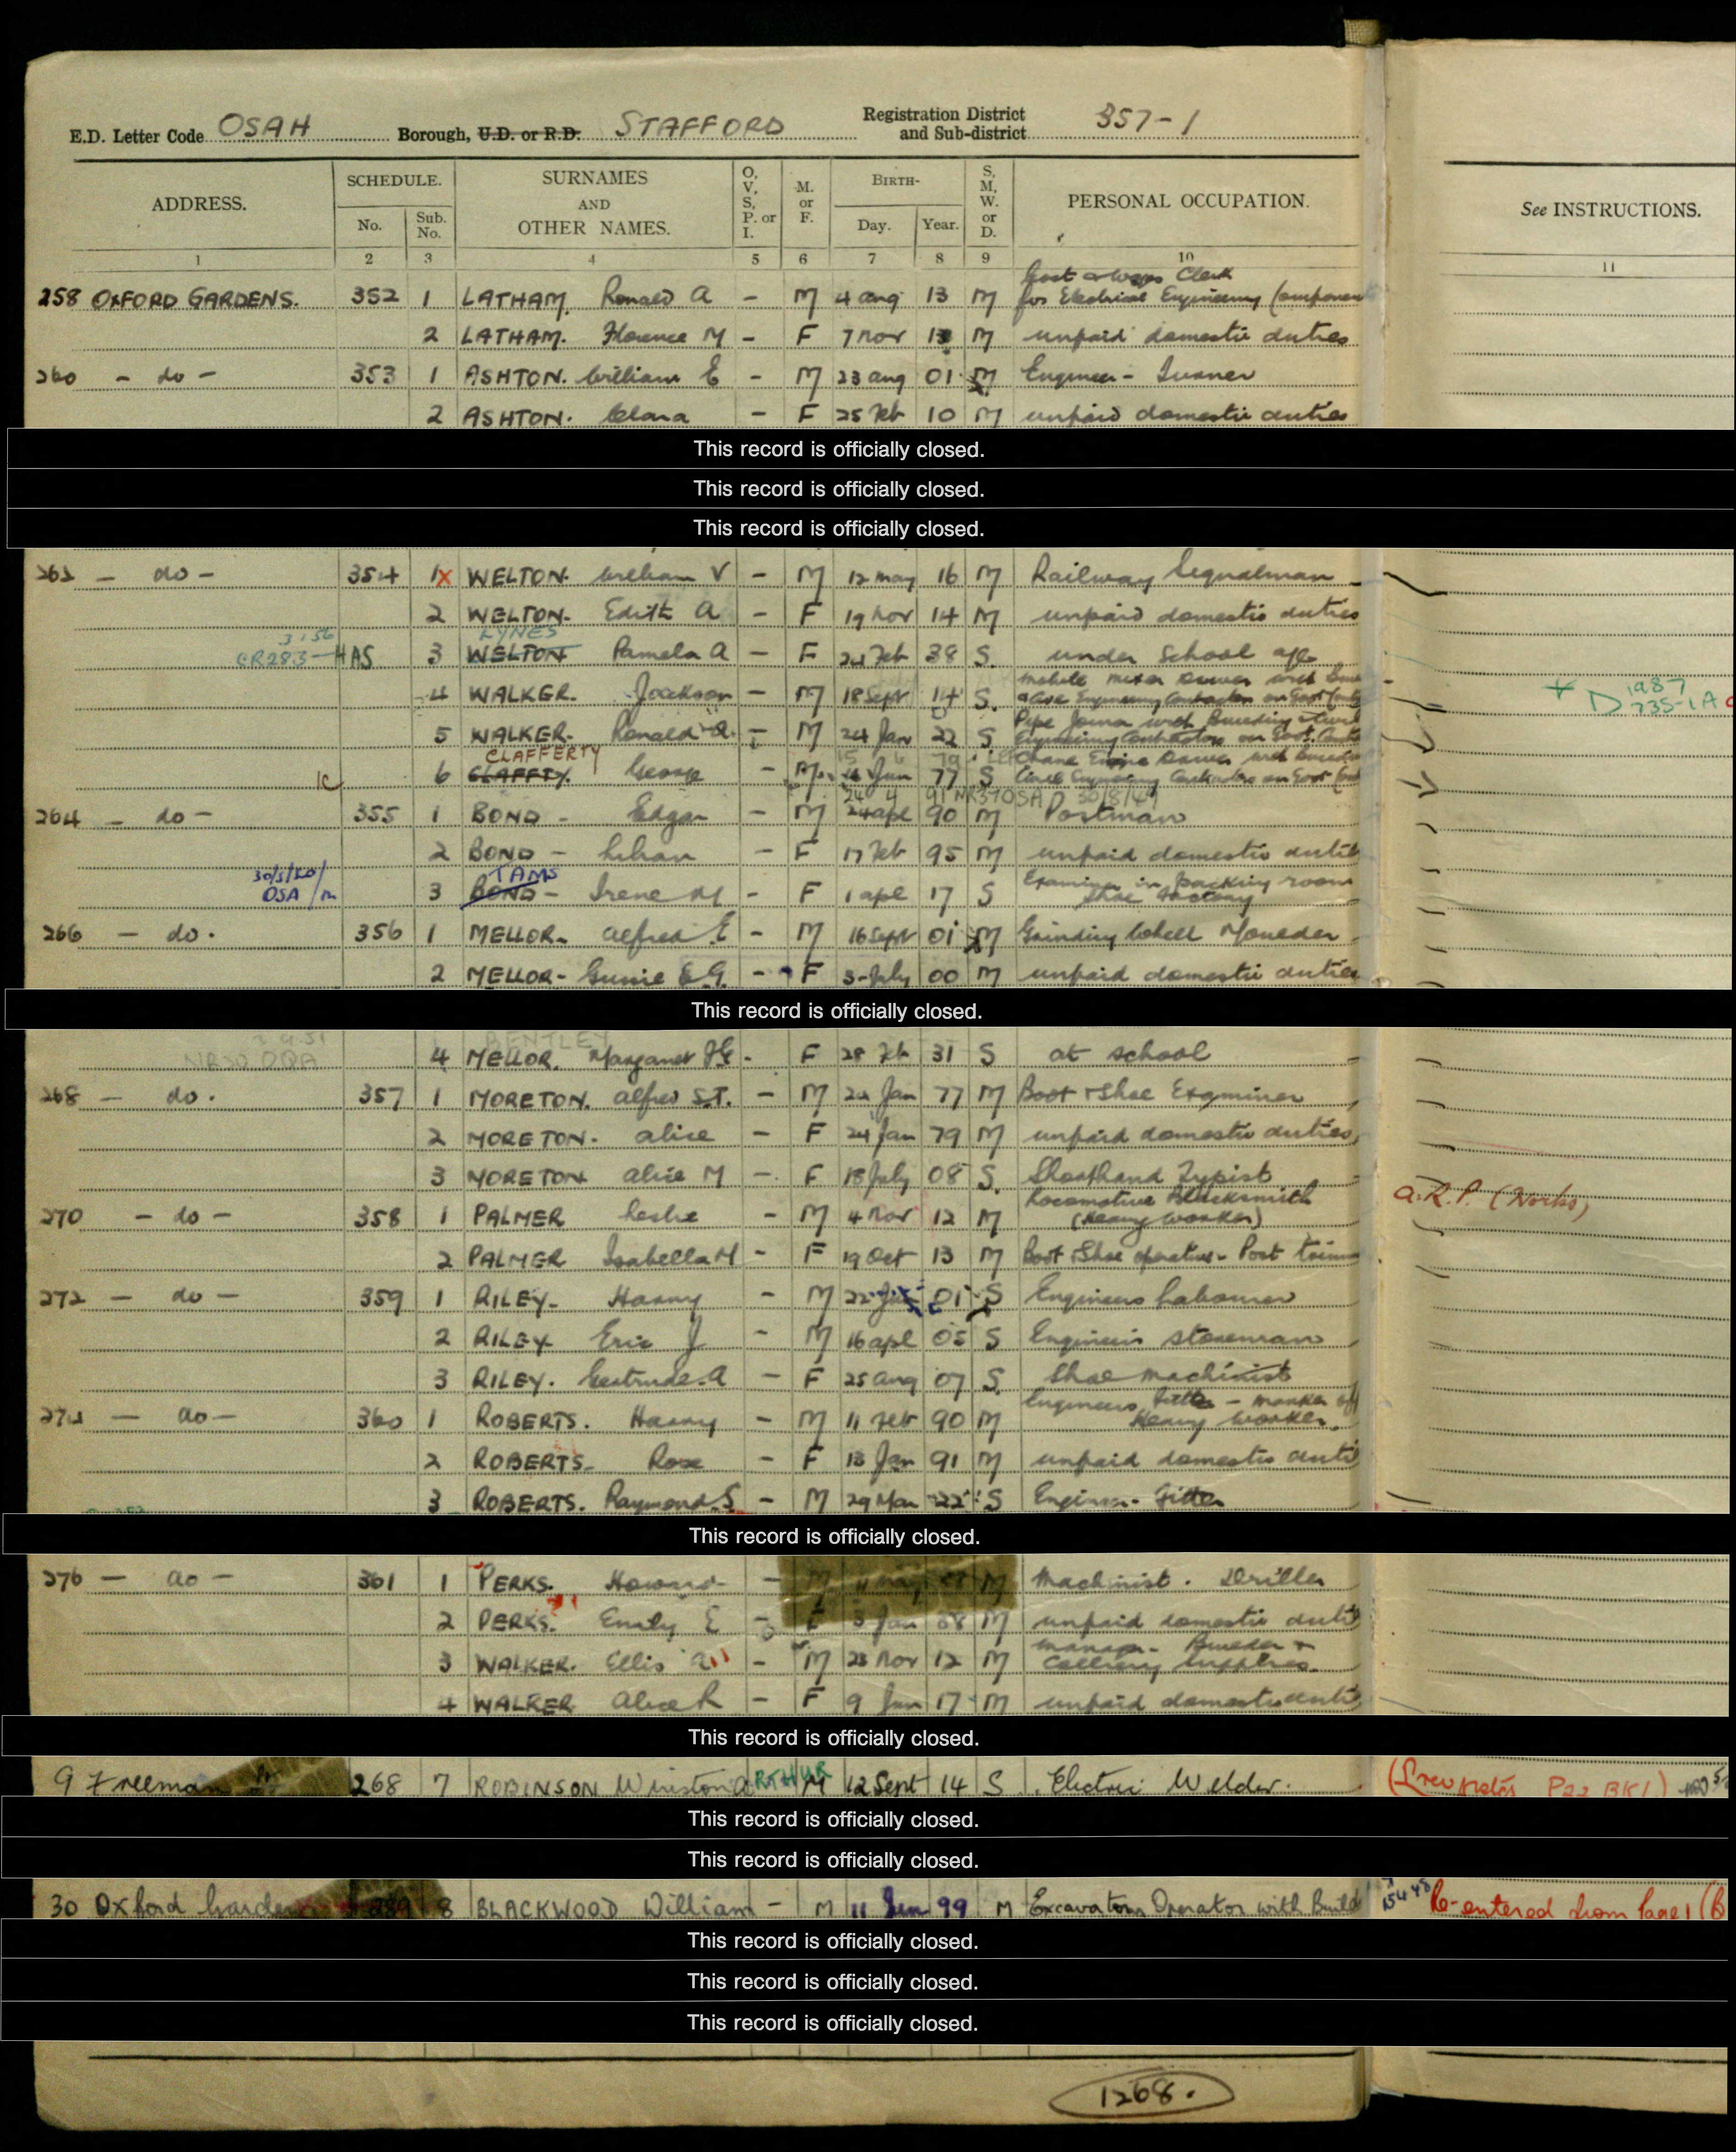 E.D. Letter Code OSAH Borough, U.D. or R.D. STAFFORD Registration District and Sub-district 357-1
ADDRESS. SCHEDULE. No. Sub. No. SURNAMES AND OTHER NAMES. O, V, S, P. or I. M. or F. BIRTH- Day. Year. S, M, W. or D. PERSONAL OCCUPATION. See INSTRUCTIONS.
1 2 3 4 5 6 7 8 9 10 11
258 OXFORD GARDENS. 352 1 LATHAM. Ronald A - M 4 Aug 13 M Cost & Wages Clerk for Electrical Engineering Component
2 LATHAM. Florence M - F 7 Nov 13 M unpaid domestic duties
260 - do - 353 1 ASHTON. William E - M 23 Aug 01 M Engineer - Turner
2 ASHTON. Clara - F 25 Feb 10 M unpaid domestic duties
This record is officially closed.
This record is officially closed.
This record is officially closed.
262 - do - 354 1x WELTON. William V - M 12 May 16 M Railway Signalman
2 WELTON. Edith A - F 19 Nov 14 M unpaid domestic duties
LYNES
CR283 HAS 3 WELTON Pamela A - F 24 Feb 38 S. under School age
4 WALKER. Jackson - M 18 Sept 14 S. Civil Engineering Contractors on Govt
D 1987 735-1A
5 WALKER. Ronald A. - M 24 Jan 22 S Pipe Joiner with Building & Civil Engineering Contractors on Govt.
CLAFFERTY
6 CLAFFTY. George - M. Jun 77 S Crane Engine Driver with Building Civil Engineering Contractors on Govt
24 4 91 NR37OSA 30/8/49
264 - do - 355 1 BOND - Edgar - M 24 Apl 90 M Postman
2 BOND - Lilian - F 17 Feb 95 M unpaid domestic duties
TAMS
OSA/m 3 BOND - Irene M - F 1 Apl 17 S Examiner in packing room Shoe Factory
266 - do. 356 1 MELLOR. Alfred E - M 16 Sept 01 M Grinding Wheel Moulder
2 MELLOR - E G. - F 3 July 00 M unpaid domestic duties
This record is officially closed.
BENTLEY
4 MELLOR. Margaret - F 28 Feb 31 S at school
268 - do. 357 1 MORETON. Alfred S.T. - M 24 Jan 77 M Boot & Shoe Examiner
2 MORETON. Alice - F 24 Jan 79 M unpaid domestic duties
3 MORETON Alice M - F 18 July 08 S. Shorthand Typist
270 - do - 358 1 PALMER Leslie - M 4 Nov 12 M Locomotive Blacksmith (Heavy Worker) A.R.P. (Works)
2 PALMER Isabella M - F 19 Oct 13 M Boot & Shoe operative - Post
272 - do - 359 1 RILEY. Harry - M 22 01 S Engineers Labourer
2 RILEY Eric J - M 16 Apl 05 S Engineers storeman
3 RILEY. Gertrude A - F 25 Aug 07 S. Shoe machinist
274 - do - 360 1 ROBERTS. Harry - M 11 Feb 90 M Engineers Fitter - marker off Heavy Worker.
2 ROBERTS. Rose - F 13 Jan 91 M unpaid domestic duti
3 ROBERTS. Raymond S - M 29 Mar 22 S Engineer - Fitter
This record is officially closed.
276 - do - 361 1 PERKS. Howard - M 11 M Machinist. Driller
2 PERKS. Emily E - F 3 Jan 88 M unpaid domestic duti
3 WALKER. Ellis A - M 23 Nov 12 M Manager - Builder & Colliery Supplies
4 WALKER Alice R - F 9 Jun 17 M unpaid domestic duti
This record is officially closed.
9 Freeman 268 7 ROBINSON Winston ARTHUR M 12 Sept 14 S. Electric Welder. P22 BK1)
This record is officially closed.
This record is officially closed.
30 Oxford Gardens 289 8 BLACKWOOD William - M 11 Jun 99 M Excavator Operator with Build Re-entered from Page 1 (B
This record is officially closed.
This record is officially closed.
This record is officially closed.
1268.